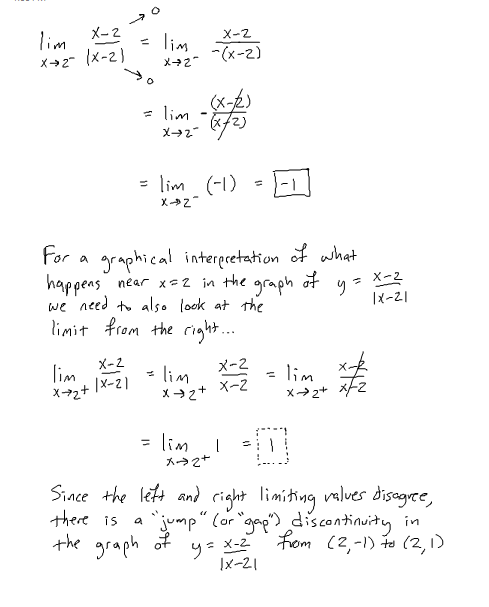 lim x→2⁻ (x-2)/|x-2| →0 →0 = lim x→2⁻ (x-2)/-(x-2)
= lim x→2⁻ -(x-2)/(x-2)
= lim x→2⁻ (-1) = -1
For a graphical interpretation of what
happens near x=2 in the graph of y = (x-2)/|x-2|
we need to also look at the
limit from the right...
lim x→2+ (x-2)/|x-2| = lim x→2+ (x-2)/(x-2) = lim x→2+ (x-2)/(x-2)
= lim x→2+ 1 = 1
Since the left and right limiting values disagree,
there is a "jump" (or "gap") discontinuity in
the graph of y = (x-2)/|x-2| from (2,-1) to (2,1)